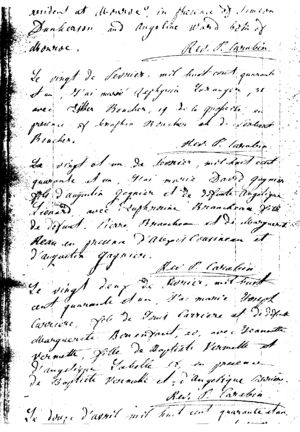 resident at Monroe, in presence of Simeon
Dunkerson and Angeline Ward both of
Monroe.
Rev. P. Carabin
Le vingt de fevrier, mil huit cent quarante
et un J'ai marié Zephyrin
avec Esther Boucher, 19 de la
presence of Boucher et de
Boucher.
Rev. P. Carabin
Le vingt et un de fevrier, mil huit cent
quarante et un J'ai marié David Gagnier
fils d'augustin Gagnier et de défunte Angelique
Leonard, avec Euphrosine Brancheau fille
de défunt Pierre Brancheau et de Marguerite
Reau en presence d'alexis Cousineau et
d'augustin Gagnier.
Rev. P. Carabin
Le vingt deux de fevrier, mil huit
cent quarante et un J'ai marié Joseph
Carriere, fils de Carriere et de défunte
Marguerite Bonenfant, avec Jeannette
Vermette, fille de Baptiste Vermette et
d'angelique Labelle en presence
de Baptiste Vermette et d'Angelique
Rev. P. Carabin
Le douze d'avril mil huit cent quarante et un